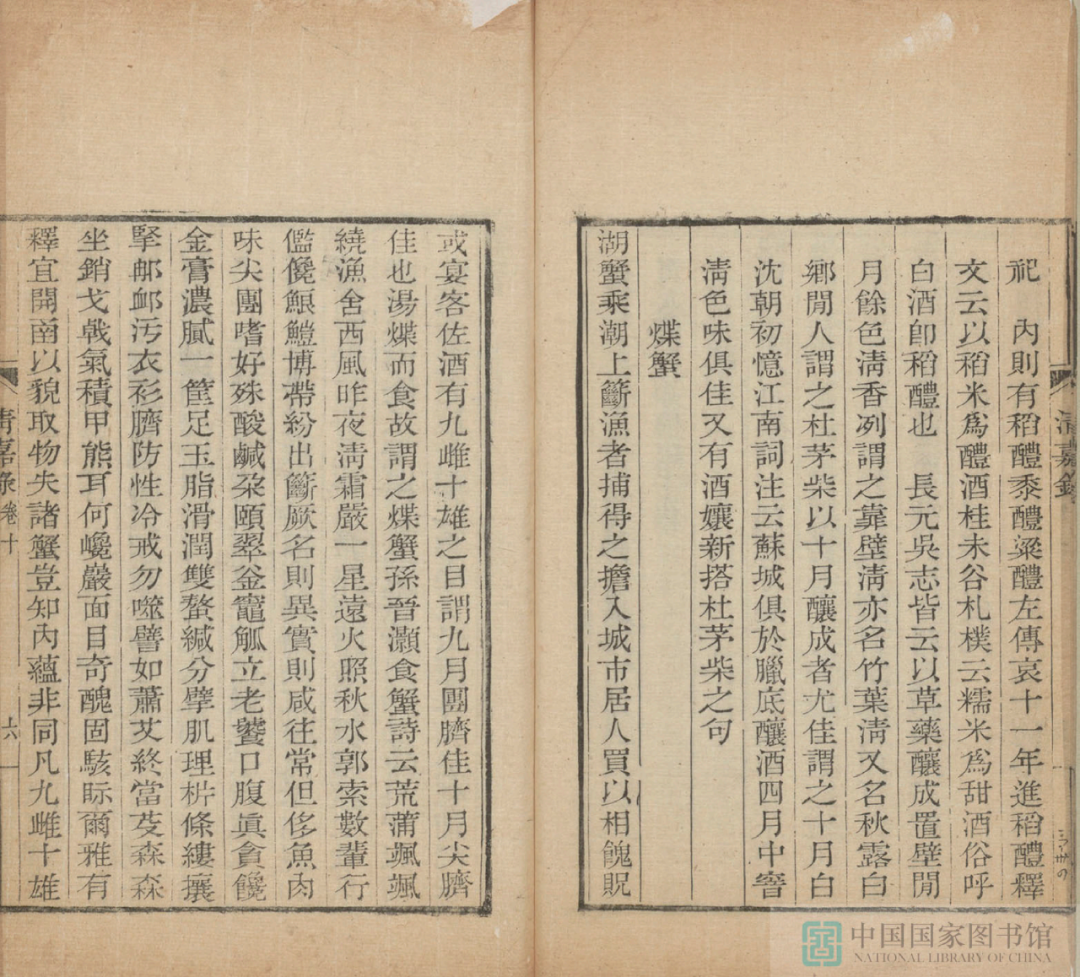 祀　內則有稻醴黍醴粱醴左傳哀十一年進稻醴釋
文云以稻米爲醴酒桂未谷札樸云糯米爲甜酒俗呼
白酒卽稻醴也　長元吳志皆云以草藥釀成置壁閒
月餘色淸香冽謂之靠壁淸亦名竹葉淸又名秋露白
鄉閒人謂之杜茅柴以十月釀成者尤佳謂之十月白
沈朝初憶江南詞注云蘇城俱於臘底釀酒四月中窨
淸色味俱佳又有酒孃新搭杜茅柴之句
煠蟹
湖蟹乘潮上籪漁者捕得之擔入城市居人買以相餽貺
淸嘉錄
或宴客佐酒有九雌十雄之目謂九月團臍佳十月尖臍
佳也湯煠而食故謂之煠蟹孫晉灝食蟹詩云荒蒲颯颯
繞漁舍西風昨夜淸霜嚴一星遠火照秋水郭索數輩行
儖儳鯤鱧博帶紛出籪厥名則異實則咸往常但侈魚肉
味尖團嗜好殊酸鹹朶頤翠釜竈觚立老饕口腹眞貪饞
金膏濃膩一筐足玉脂滑潤雙螯緘分擘肌理枿條縷攘
掔卹卹汚衣衫臍防性冷戒勿噬譬如蕭艾終當芟森森
坐銷戈戟氣積甲熊耳何巉巖面目奇醜固駭眎爾雅有
釋宜開函以貌取物失諸蟹豈知內蘊非同凡九雌十雄
淸嘉录 卷十 六
中国国家图书馆
NATIONAL LIBRARY OF CHINA